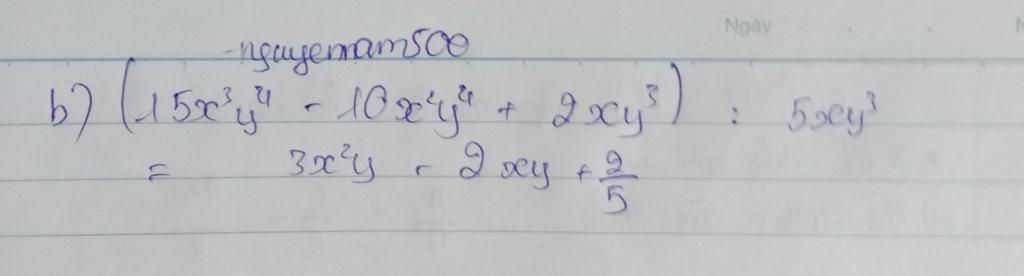 Ngày
nguyenam500
b) (15x³y⁴ - 10x²y⁴ + 2xy³) : 5xy³
= 3x²y - 2xy + 2/5